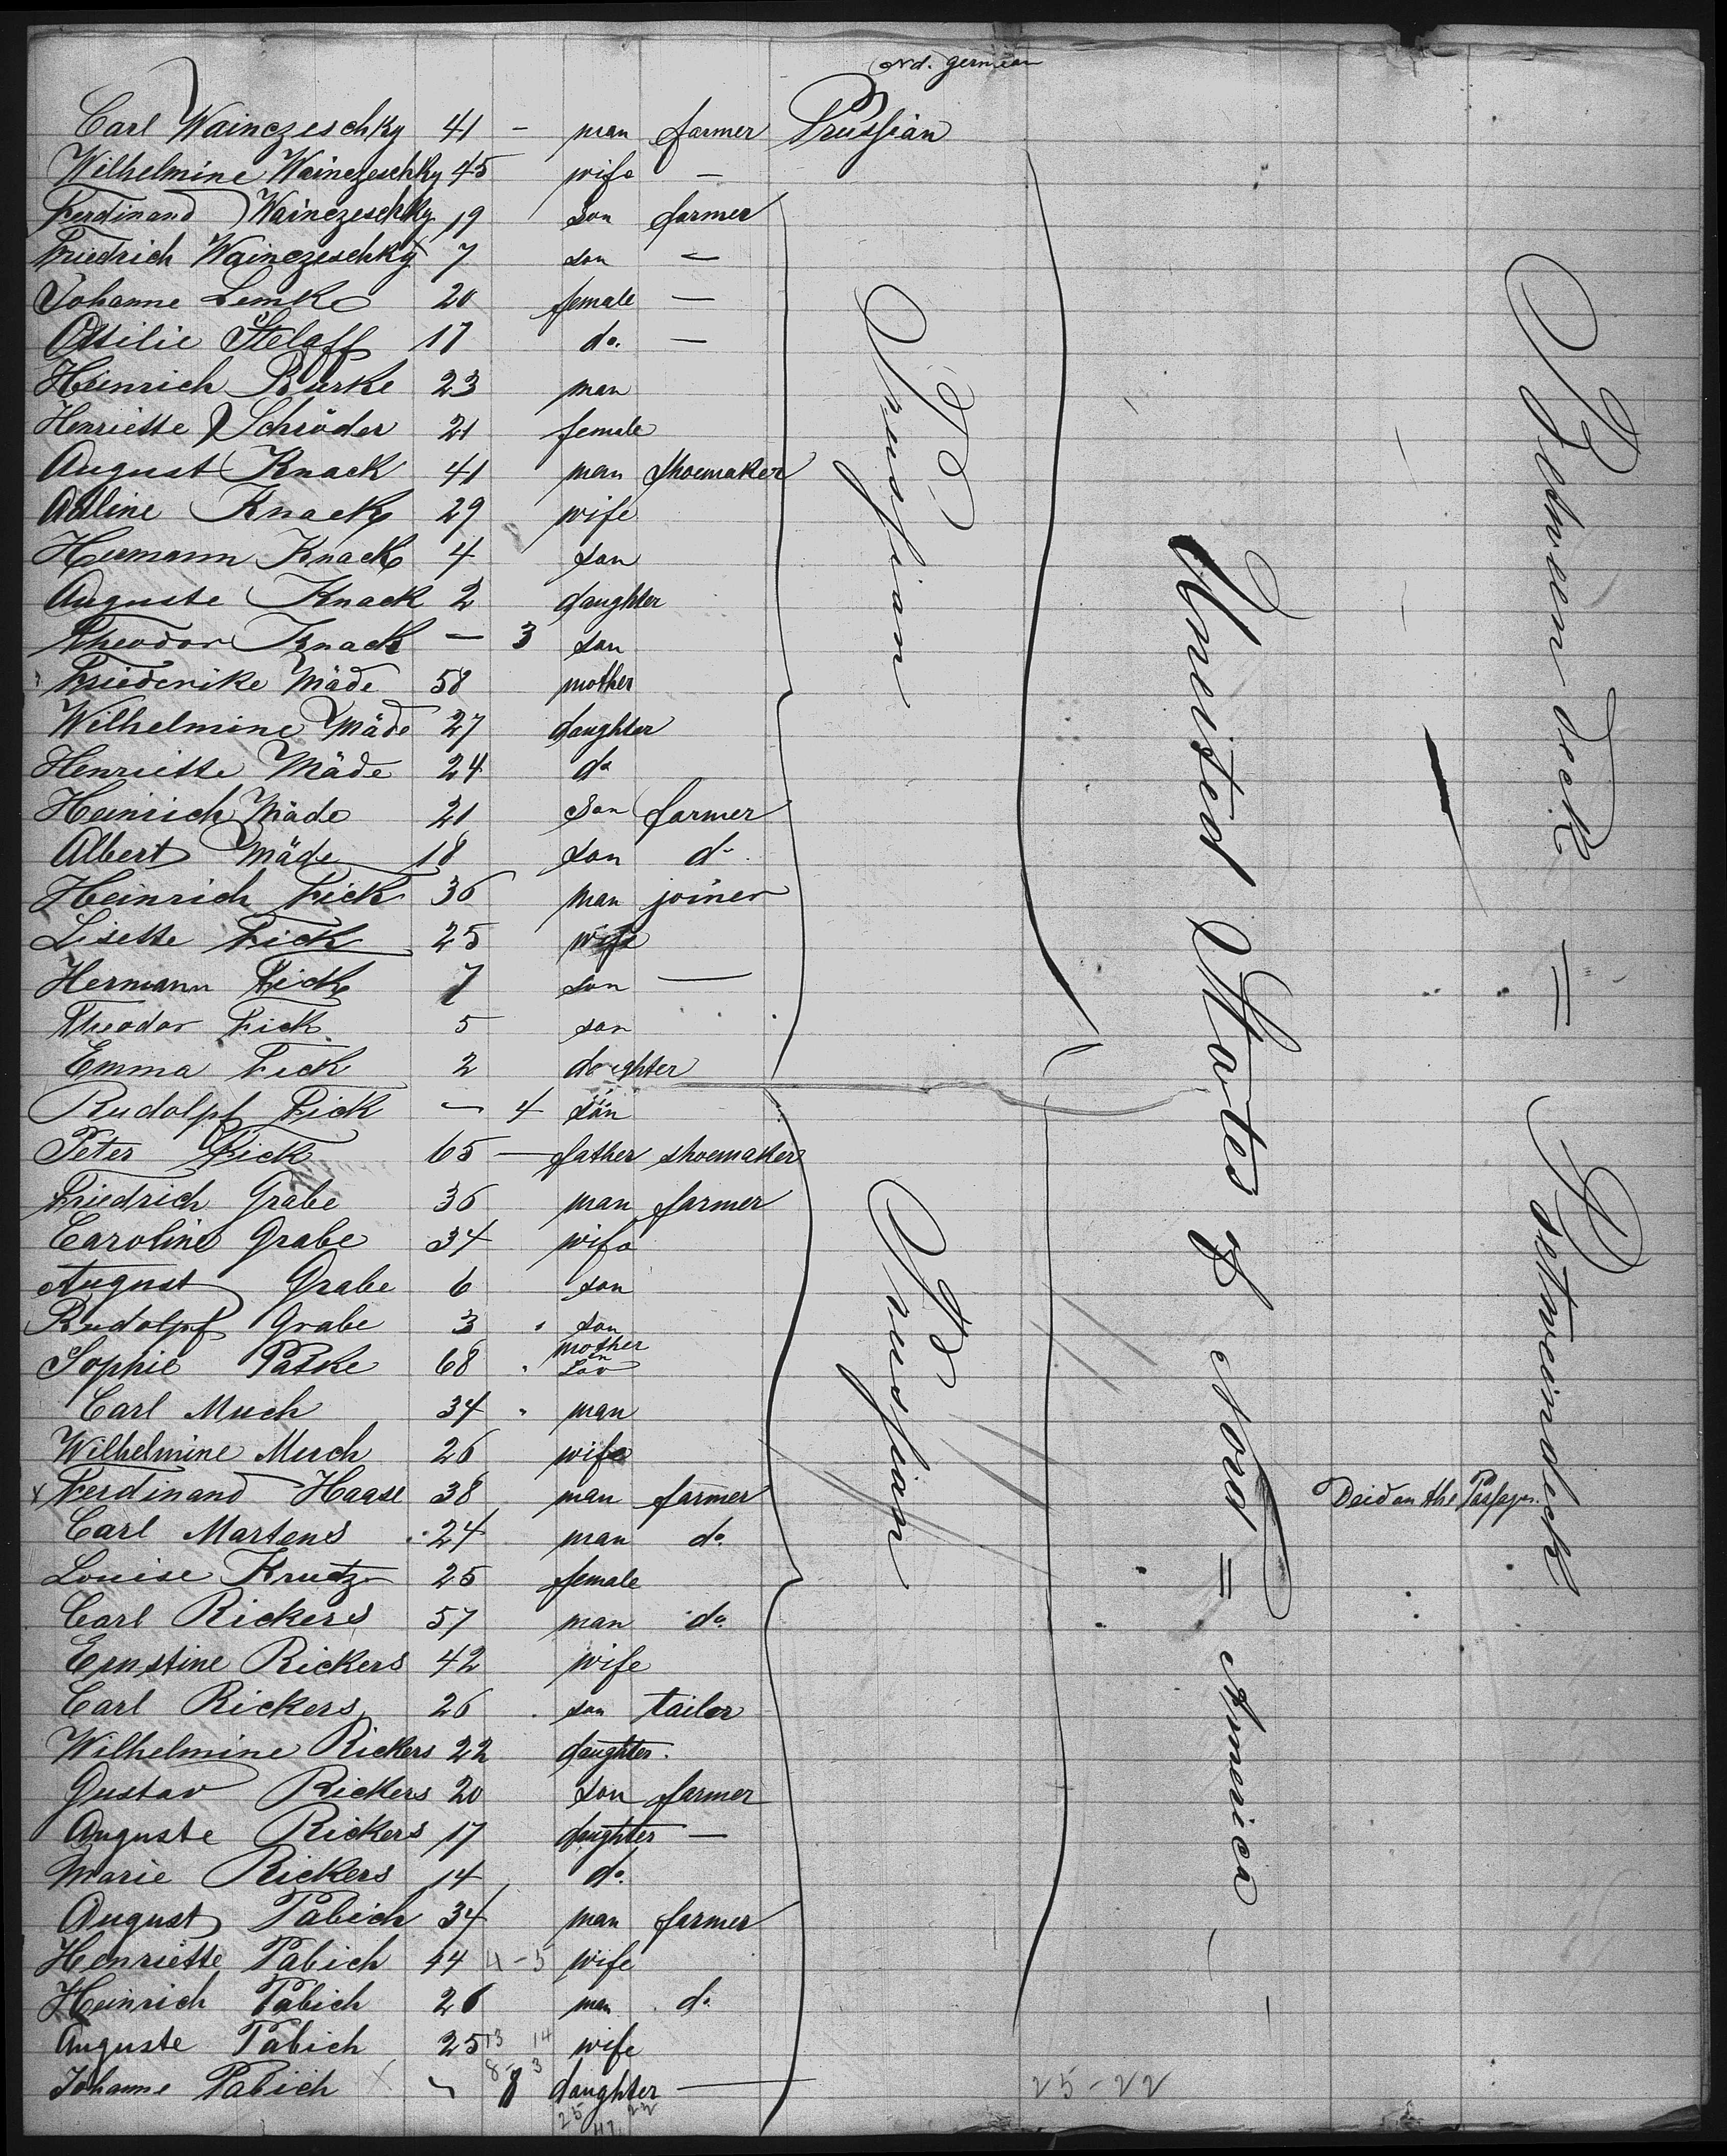 Nd. german
Carl Wainczeschky 41 - man farmer Prussian
Wilhelmine Wainczeschky 45 wife -
Ferdinand Wainczeschky 19 son farmer
Friedrich Wainczeschky 7 son -
Johanne Lemke 20 female -
Ottilie Stelaff 17 do. -
Heinrich Burke 23 man
Henriette Schröder 21 female
August Knack 41 man shoemaker
Adline Knack 29 wife
Hermann Knack 4 son
Auguste Knack 2 daughter
Theodor Knack - 3 son
Friederike Mäde 58 mother
Wilhelmine Mäde 27 daughter
Henriette Mäde 24 do
Heinrich Mäde 21 son farmer
Albert Mäde 18 son do.
Heinrich Fick 36 man joiner
Lisette Fick 25 wife
Hermann Fick 7 son -
Theodor Fick 5 son
Emma Fick 2 daughter
Rudolpf Fick - 4 son
Peter Fick 65 - father shoemaker
Friedrich Grabe 36 man farmer
Caroline Grabe 34 wife
August Grabe 6 son
Rudolpf Grabe 3 son
Sophie Patke 68 mother in Law
Carl Much 34 man
Wilhelmine Much 26 wife
x Ferdinand Haase 38 man farmer Deid on the Passage.
Carl Martens 24 man do.
Louise Krutz 25 female
Carl Rickers 57 man do.
Ernstine Rickers 42 wife
Carl Rickers 26 son tailor
Wilhelmine Rickers 22 daughter.
Gustav Rickers 20 son farmer
Auguste Rickers 17 daughter -
Marie Rickers 14 do.
August Pabich 34 man farmer
Henriette Pabich 44 4-5 wife
Heinrich Pabich 26 man do.
Auguste Pabich 25 13 14 wife
Johanne Pabich x - 8 daughter -
8 3
25 22
47
25-22
Prussian
Prussian
United States of Nord = America
Zwischendeck = Zwischendeck